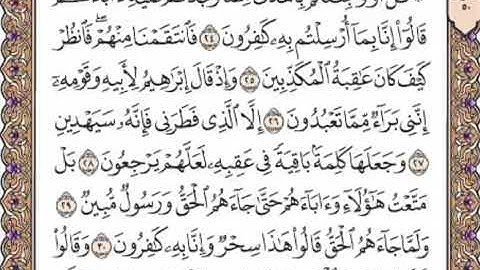 قَالُوٓا۟ إِنَّا بِمَآ أُرْسِلْتُم بِهِۦ كَـٰفِرُونَ ٢٤ فَٱنتَقَمْنَا مِنْهُمْ ۖ فَٱنظُرْ
كَيْفَ كَانَ عَـٰقِبَةُ ٱلْمُكَذِّبِينَ ٢٥ وَإِذْ قَالَ إِبْرَٰهِيمُ لِأَبِيهِ وَقَوْمِهِۦٓ
إِنَّنِى بَرَآءٌ مِّمَّا تَعْبُدُونَ ٢٦ إِلَّا ٱلَّذِى فَطَرَنِى فَإِنَّهُۥ سَيَهْدِينِ
٢٧ وَجَعَلَهَا كَلِمَةًۢ بَاقِيَةً فِى عَقِبِهِۦ لَعَلَّهُمْ يَرْجِعُونَ ٢٨ بَلْ
مَتَّعْتُ هَـٰٓؤُلَآءِ وَءَابَآءَهُمْ حَتَّىٰ جَآءَهُمُ ٱلْحَقُّ وَرَسُولٌ مُّبِينٌ ٢٩
وَلَمَّا جَآءَهُمُ ٱلْحَقُّ قَالُوا۟ هَـٰذَا سِحْرٌ وَإِنَّا بِهِۦ كَـٰفِرُونَ ٣٠ وَقَالُوا۟